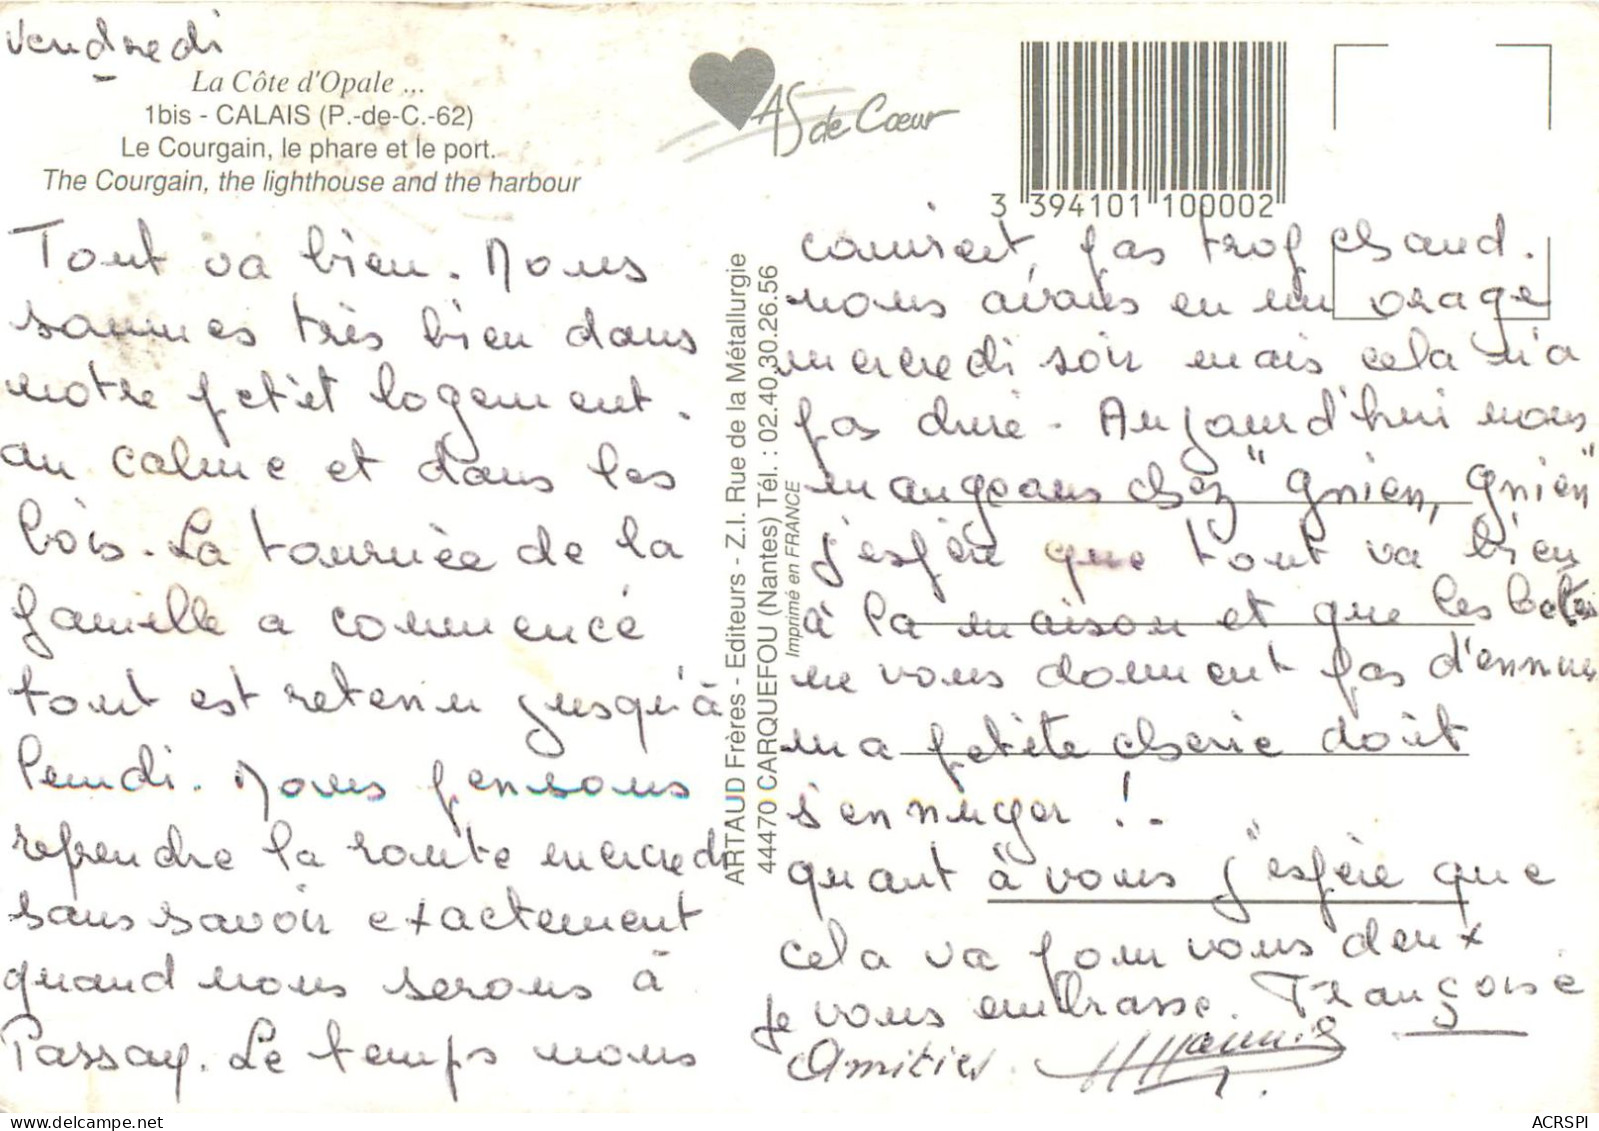 Vendredi
La Côte d'Opale ...
1bis - CALAIS (P.-de-C.-62)
Le Courgain, le phare et le port.
The Courgain, the lighthouse and the harbour
AS de Cœur
3 394101 100002
Tout va bien. Nous
sommes très bien dans
notre petit logement.
au calme et dans les
bois. La tournée de la
famille a commencé
tout est retenu jusqu'à
lundi. Nous pensons
reprendre la route mercredi
sans savoir exactement
quand nous serons à
Passay. Le temps nous
ARTAUD Frères - Editeurs - Z.I. Rue de la Métallurgie
44470 CARQUEFOU (Nantes) Tél. : 02.40.30.26.56
Imprimé en FRANCE
convient, pas trop chaud.
nous avons eu un orage
mercredi soir mais cela n'a
pas duré. Aujourd'hui nous
mangeons chez "gnien, gnien"
j'espère que tout va bien
à la maison et que les betes
ne vous donnent pas d'ennuis
ma petite cherie doit
s'ennuyer !.
quant à vous j'espère que
cela va pour vous deux
je vous embrasse. Françoise
Amitiés.
ACRSPI